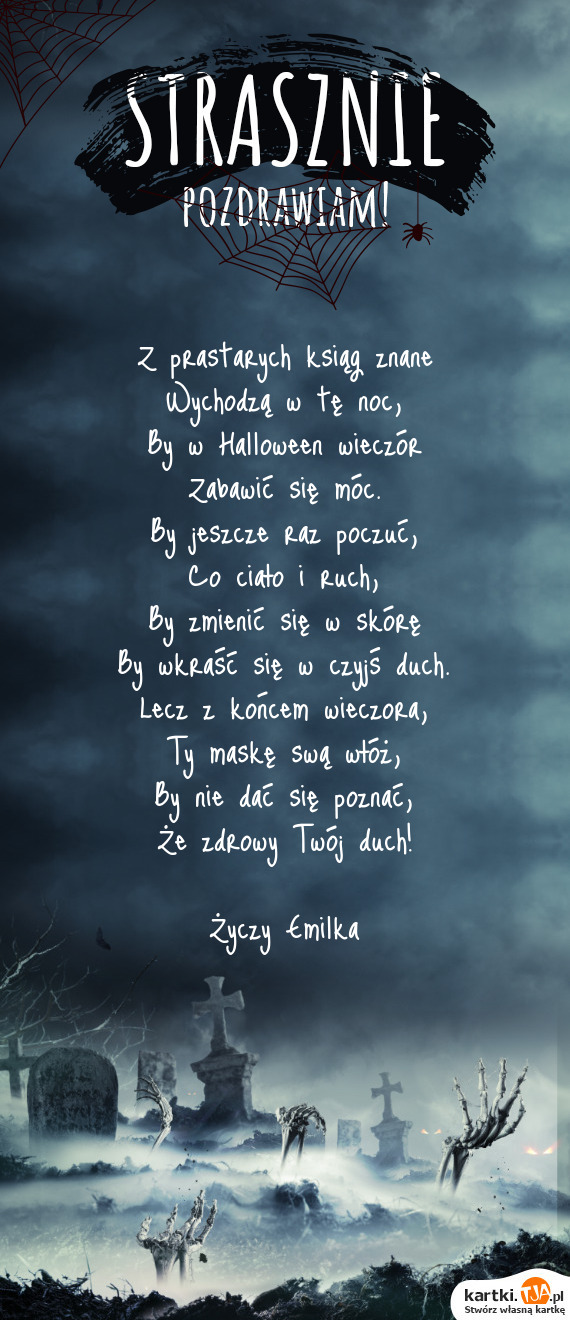 STRASZNIE
POZDRAWIAM!
Z prastarych ksiąg znane
Wychodzą w tę noc,
By w Halloween wieczór
Zabawić się móc.
By jeszcze raz poczuć,
Co ciało i ruch,
By zmienić się w skórę
By wkraść się w czyjś duch.
Lecz z końcem wieczora,
Ty maskę swą włóż,
By nie dać się poznać,
Że zdrowy Twój duch!
Życzy Emilka
kartki.TJA.pl
Stwórz własną kartkę